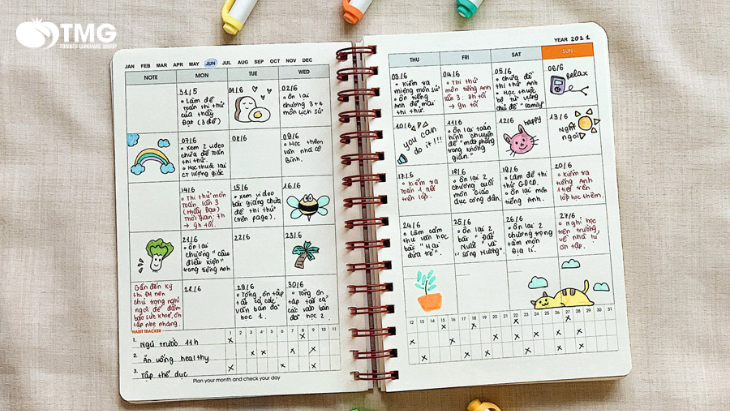 TMG
YEAR 2021
JAN FEB MAR APR MAY JUN JUL AUG SEP OCT NOV DEC
NOTE MON TUE WED
THU FRI SAT SUN
31/5
• Làm đề
toán thi thử
của thầy
Đạt (3 đề)
01/6
02/6
• ôn lại
chương 3+4
môn Lịch sử
03/6
• Kiểm tra
miệng môn sử
• ôn tiếng
Anh để mai thi
thử.
04/6
• Thi thử
môn tiếng Anh
lần 3
05/6
• chữa đề
thi thử Anh
• Học thuộc
bộ từ vựng
chủ đề "family"
06/6
relax
07/6
• Xem 2 video
chữa đề toán
thi thử.
• Học thuộc lại
CT lượng giác
08/6
09/6
• Học thêm
văn nhà cô
Bình.
10/6
you can
do it !!!
11/6
• ôn lại toán
hình chuyên
đề "mặt phẳng
trong không
gian"
12/6
happy
13/6
Nghỉ
ngơi
14/6
• Thi thử môn
Toán lần 3
(thầy Đạt)
Thời gian: 7h
→ 9h tối.
15/6
• xem video
bài giảng chữa
đề thi thử
(trên page).
16/6
17/6
• Kiểm tra
Toán 1 tiết
trên lớp.
18/6
• ôn lại 2
chương cuối
môn Giáo
dục công dân.
19/6
• Làm đề thi
thử GDCD.
• ôn lại môn
tiếng Anh.
20/6
• Kiểm tra
tiếng Anh
1 tiết trên
lớp học thêm.
21/6
• ôn lại
chương "câu
điều kiện"
trong tiếng Anh
22/6
23/6
24/6
• Làm cảm
thụ văn học
bài
25/6
• ôn lại 2
bài "Đất
nước" và
"sông Hương"
26/6
• ôn lại 2
chương trọng
tâm môn
Địa lí.
27/6
• Nghỉ học
trên trường,
về nhà tự
ôn tập.
Gần đến kỳ
thi ĐH nên
chú trọng nghỉ
ngơi để đảm
bảo sức khoẻ, ôn
tập nhẹ nhàng.
28/6
29/6
• Tổng ôn tập
tất cả các
văn bản đã
học 1.
30/6
• Tổng ôn
tập tất cả
các văn bản
đã học 2.
HABIT TRACKER 1 2 3 4 5 6 7 8 9 10 11
12 13 14 15 16 17 18 19 20 21 22 23 24 25 26 27 28 29 30 31
1. Ngủ trước 11h
2. Ăn uống healthy
3. Tập thể dục
Plan your month and check your day